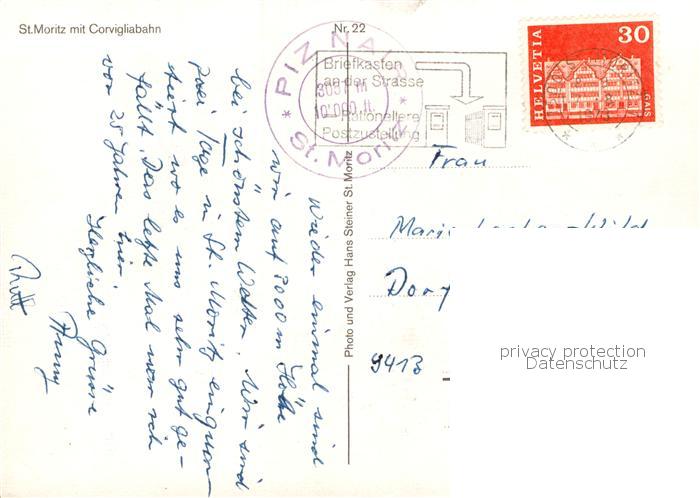 St.Moritz mit Corvigliabahn
Nr. 22
Wieder einmal sind
wir auf 3000 m Höhe
bei schönstem Wetter. Wir sind
paar Tage in St. Moritz einquar-
tiert wo es uns sehr gut ge-
fällt. Das letzte Mal war ich
vor 25 Jahren hier.
Herzliche Grüsse
Photo und Verlag Hans Steiner St. Moritz
PIZ NAIR
3057 m
10'000 ft.
* St. Moritz *
Briefkasten
an der Strasse
Rationellere
Postzustellung
HELVETIA
30
GAIS
Frau
Dorf
9413
privacy protection
Datenschutz